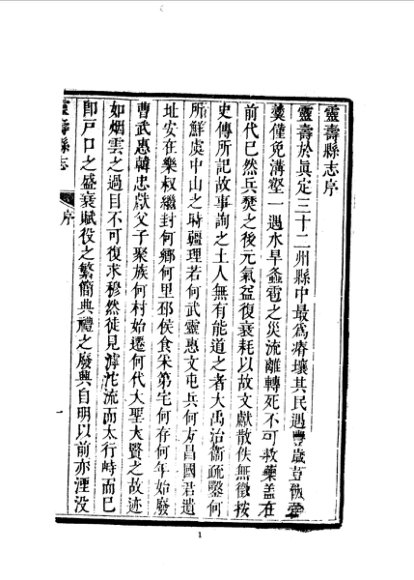 靈壽縣志序
靈壽於眞定三十二州縣中最爲瘠壤其民遇豐歲荳飯藿
羹僅免溝壑一遇水旱螽雹之災流離轉死不可救藥盖在
前代已然兵燹之後元氣益復衰耗以故文獻散佚無徵按
史傳所記故事詢之土人無有能道之者大禹治衞疏鑿何
所鮮虞中山之時疆理若何武靈惠文屯兵何方昌國君遺
址安在樂叔繼封何鄉何里邳侯食采第宅何存何年始廢
曹武惠韓忠獻父子聚族何村始遷何代大聖大賢之故迹
如烟雲之過目不可復求穆然徒見滹沱流而太行峙而已
卽戸口之盛衰賦役之繁簡典禮之廢興自明以前亦湮没
靈壽縣志
序
一
1